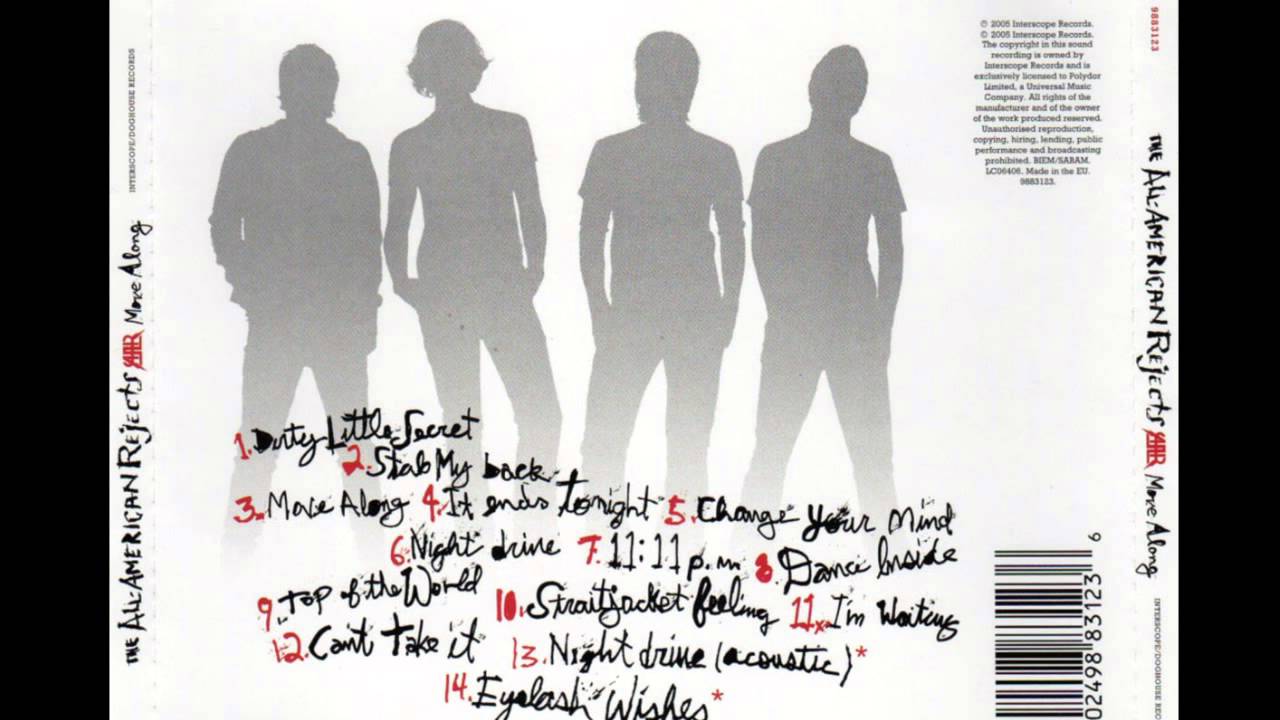 INTERSCOPE/DOGHOUSE RECORDS
THE ALL-AMERICAN REJECTS AAR Move Along
℗ 2005 Interscope Records.
© 2005 Interscope Records.
The copyright in this sound
recording is owned by
Interscope Records and is
exclusively licensed to Polydor
Limited, a Universal Music
Company. All rights of the
manufacturer and of the owner
of the work produced reserved.
Unauthorised reproduction,
copying, hiring, lending, public
performance and broadcasting
prohibited. BIEM/SABAM.
LC06406. Made in the EU.
9883123.
1. Dirty Little Secret
2. Stab My back
3. Move Along 4. It ends tonight 5. Change Your Mind
6. Night drive 7. 11:11 p.m. 8. Dance Inside
9. Top of the World 10. Straitjacket feeling 11. I'm Waiting
12. Can't Take it 13. Night drive (acoustic)*
14. Eyelash Wishes*
6
02498 83123
9883123
THE ALL-AMERICAN REJECTS AAR Move Along
INTERSCOPE/DOGHOUSE REC